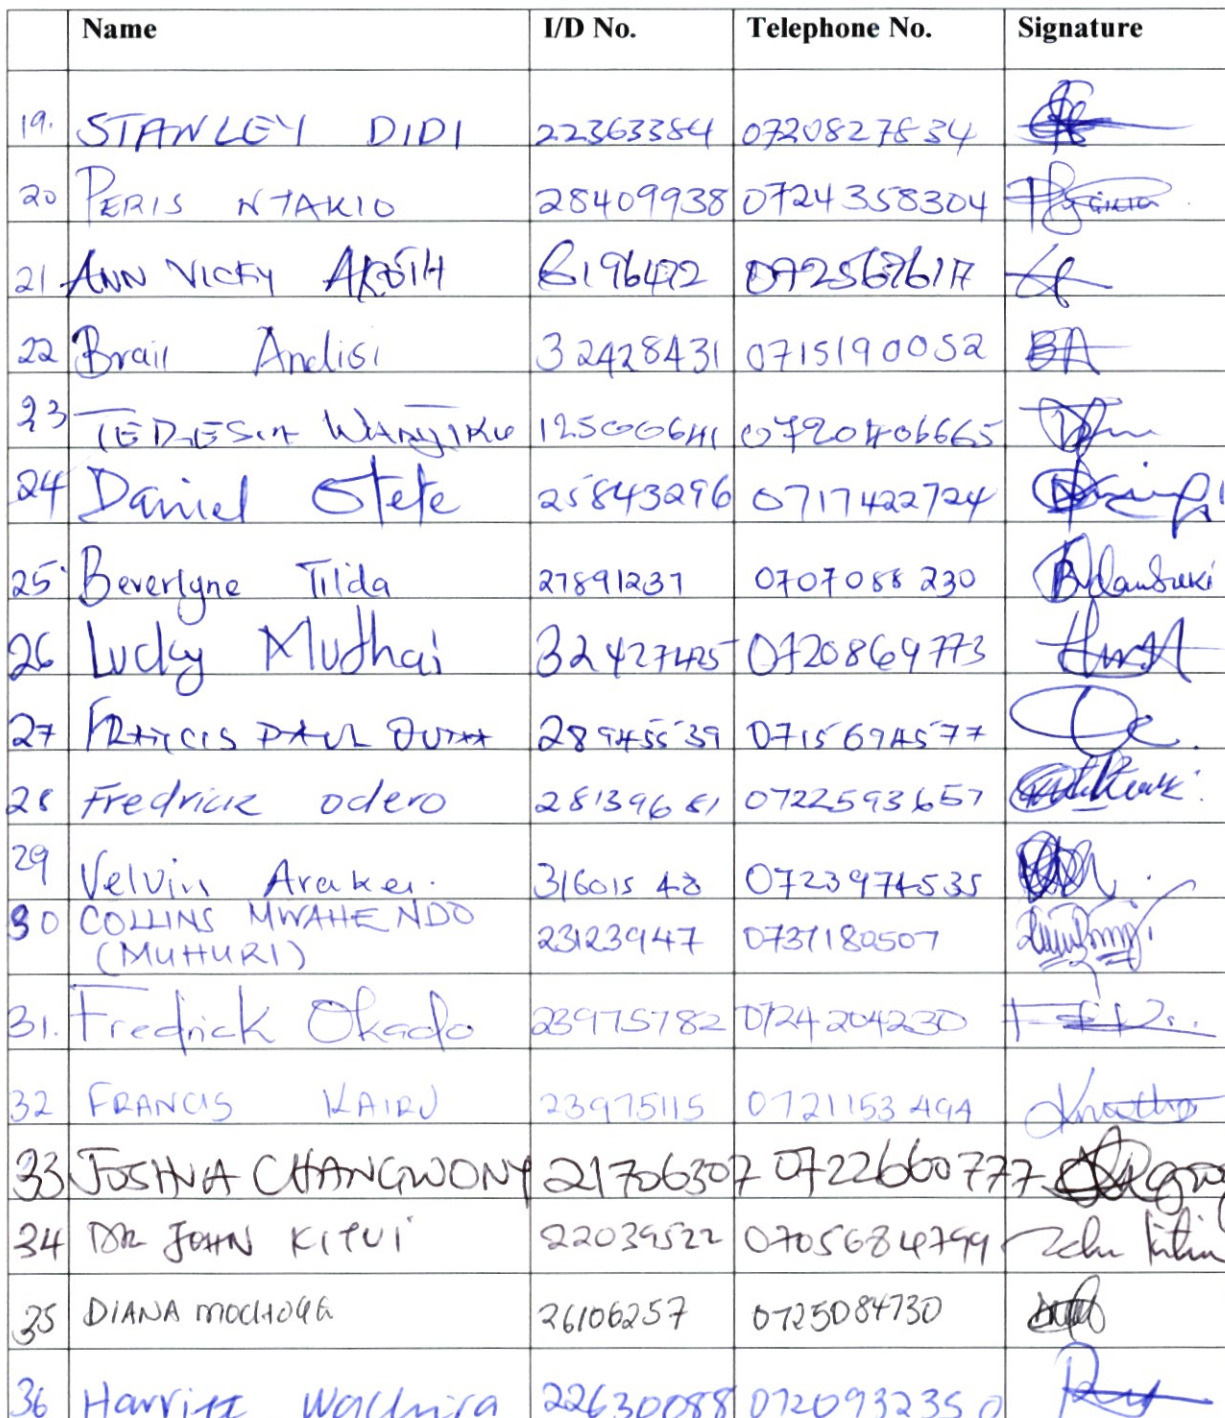 Name I/D No. Telephone No. Signature
19. STANLEY DIDI 22363384 0720827834
20 PERIS NTAKIO 28409938 0724358304
21 ANN VICKY AKOTH 6196472
22 Brail Andisi 32428431 0715190052 BA
23 WANJIKU 0720406665
24 Daniel Otete 25843296 0717422724
25. Beverlyne Tilda 27891237 0707088230
26 Lucky Muthai 32427425 0720869773
27 FRANCIS PAUL 28945539 0715694577
28 Fredrick odero 28139681 0722593657
29 Velvin Arakei. 31601548 0723974535
30 COLLINS MWAHENDO 23123947 0737180507
(MUHURI)
31. Fredrick Okado 23975782 0724204230
32 FRANCIS KAIRU 23975115 0721153494
33 JOSHUA CHANGWONY 21706307 0722660777
34 DR JOHN KITUI 22039522 0705684799
35 DIANA MOCHOGE 26106257 0725084730
36 Harriet Wachira 22630088 0720932350